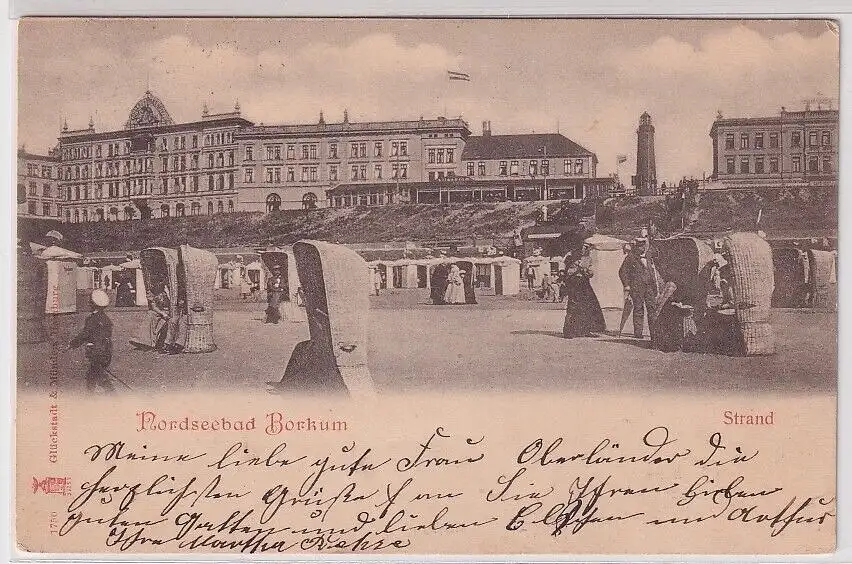 Nordseebad Borkum
Strand
Meine liebe gute Frau Oberländer die
herzlichsten Grüße an Sie Ihren lieben
guten Gatten und lieben und Arthur
Ihre Martha
Glückstadt & Münden
1750